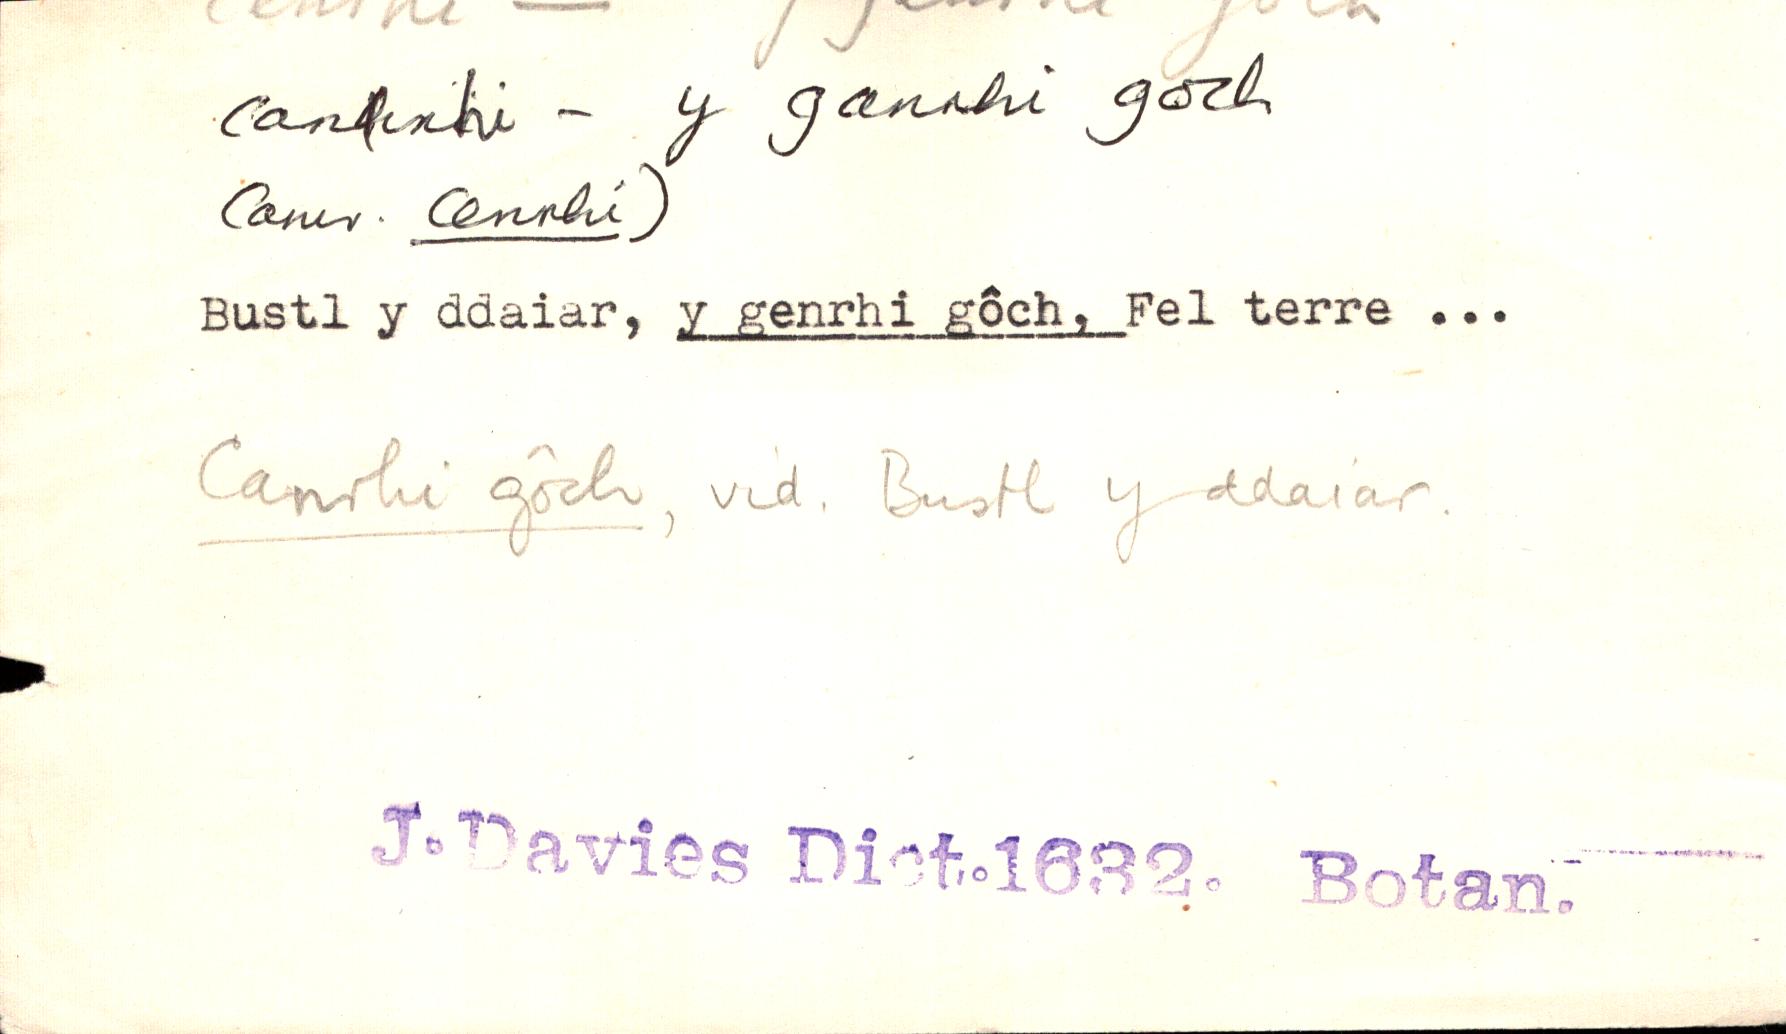 cenrhi — y genrhi gôch
canrhi – y ganrhi gôch
(amr. cenrhi)
Bustl y ddaiar, y genrhi gôch, Fel terre ...
Canrhi gôch, vid. Bustl y ddaiar.
J. Davies Dict. 1632. Botan.